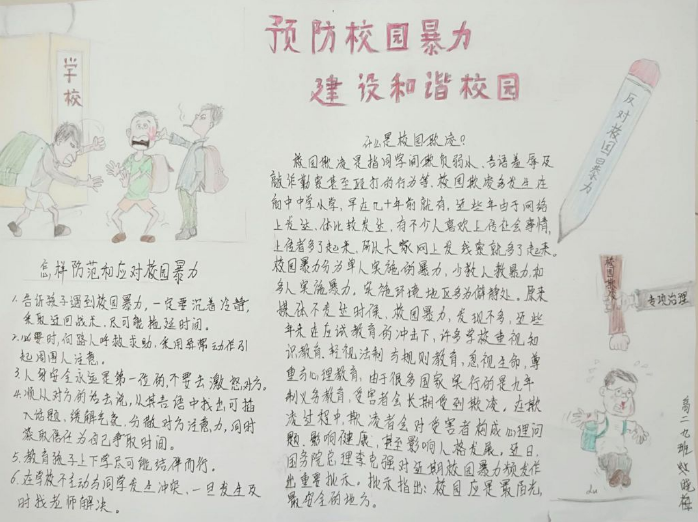 预防校园暴力
建设和谐校园
学校
反对校园暴力
什么是校园欺凌?
校园欺凌是指同学间欺负弱小、言语羞辱及
敲诈勒索甚至殴打的行为等,校园欺凌多发生在
初中中学小学,早在几十年前就有,这些年由于网络
上发达、体比较发达,有不少人喜欢上传社会事情,
上传者多了起来,所以大家网上发现案就多了起来。
校园暴力分为单人实施的暴力,少数人暴力和
多人实施暴力。实施环境地区多为僻静处。原来
媒体不发达时候,校园暴力,发现不多,这些
年来在应试教育的冲击下,许多学校重视知
识教育,轻视法制与规则教育,忽视生命,尊
重与心理教育,由于很多国家实行的是九年
制义务教育,受害者会长期受到欺凌。在欺
凌过程中,欺凌者会对受害者构成心理问
题,影响健康,甚至影响人格发展。近日,
国务院总理李克强对近期校园暴力频发作
出重要批示。批示指出:校园应是最阳光,
最安全的地方。
怎样防范和应对校园暴力
1.告诉孩子遇到校园暴力,一定要沉着冷静,
采取迂回战术,尽可能拖延时间。
2.必要时,向路人呼救求助,采用异常动作引
起周围人注意。
3.人身安全永远是第一位的,不要去激怒对方。
4.顺从对方的话去说,从其言语中找出可插
入话题,缓解气氛,分散对方注意力,同时
获取信任为自己争取时间。
5.教育孩子上下学尽可能结伴而行。
6.在学校不主动与同学发生冲突,一旦发生及
时找老师解决。
校园欺凌
专项治理
高二九班